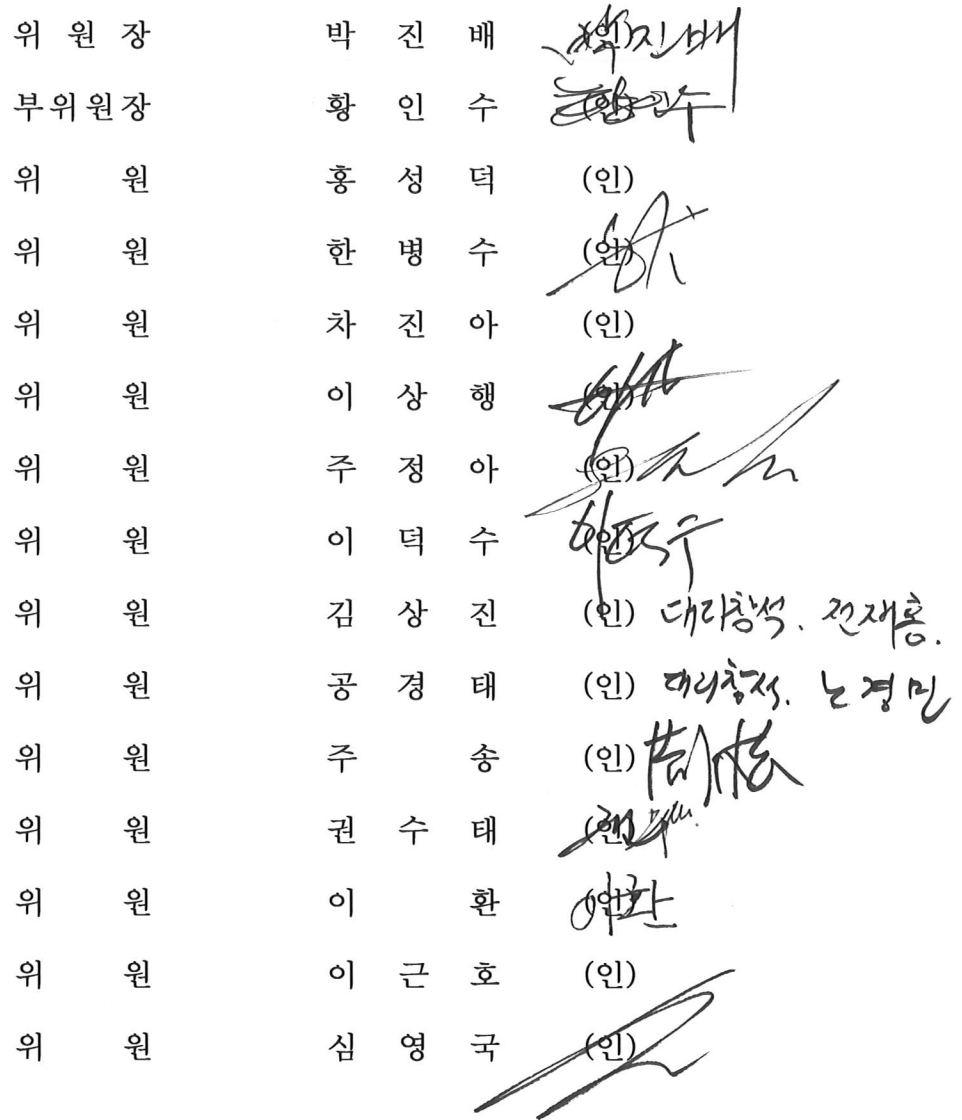 위 원 장 박 진 배 (인) 박진배
부위원장 황 인 수 (인) 황인수
위 원 홍 성 덕 (인)
위 원 한 병 수 (인)
위 원 차 진 아 (인)
위 원 이 상 행 (인)
위 원 주 정 아 (인)
위 원 이 덕 수 (인) 이덕수
위 원 김 상 진 (인) 대리참석. 전재홍.
위 원 공 경 태 (인) 대리참석. 노경민
위 원 주 송 (인)
위 원 권 수 태 (인)
위 원 이 환 (인) 이환
위 원 이 근 호 (인)
위 원 심 영 국 (인)